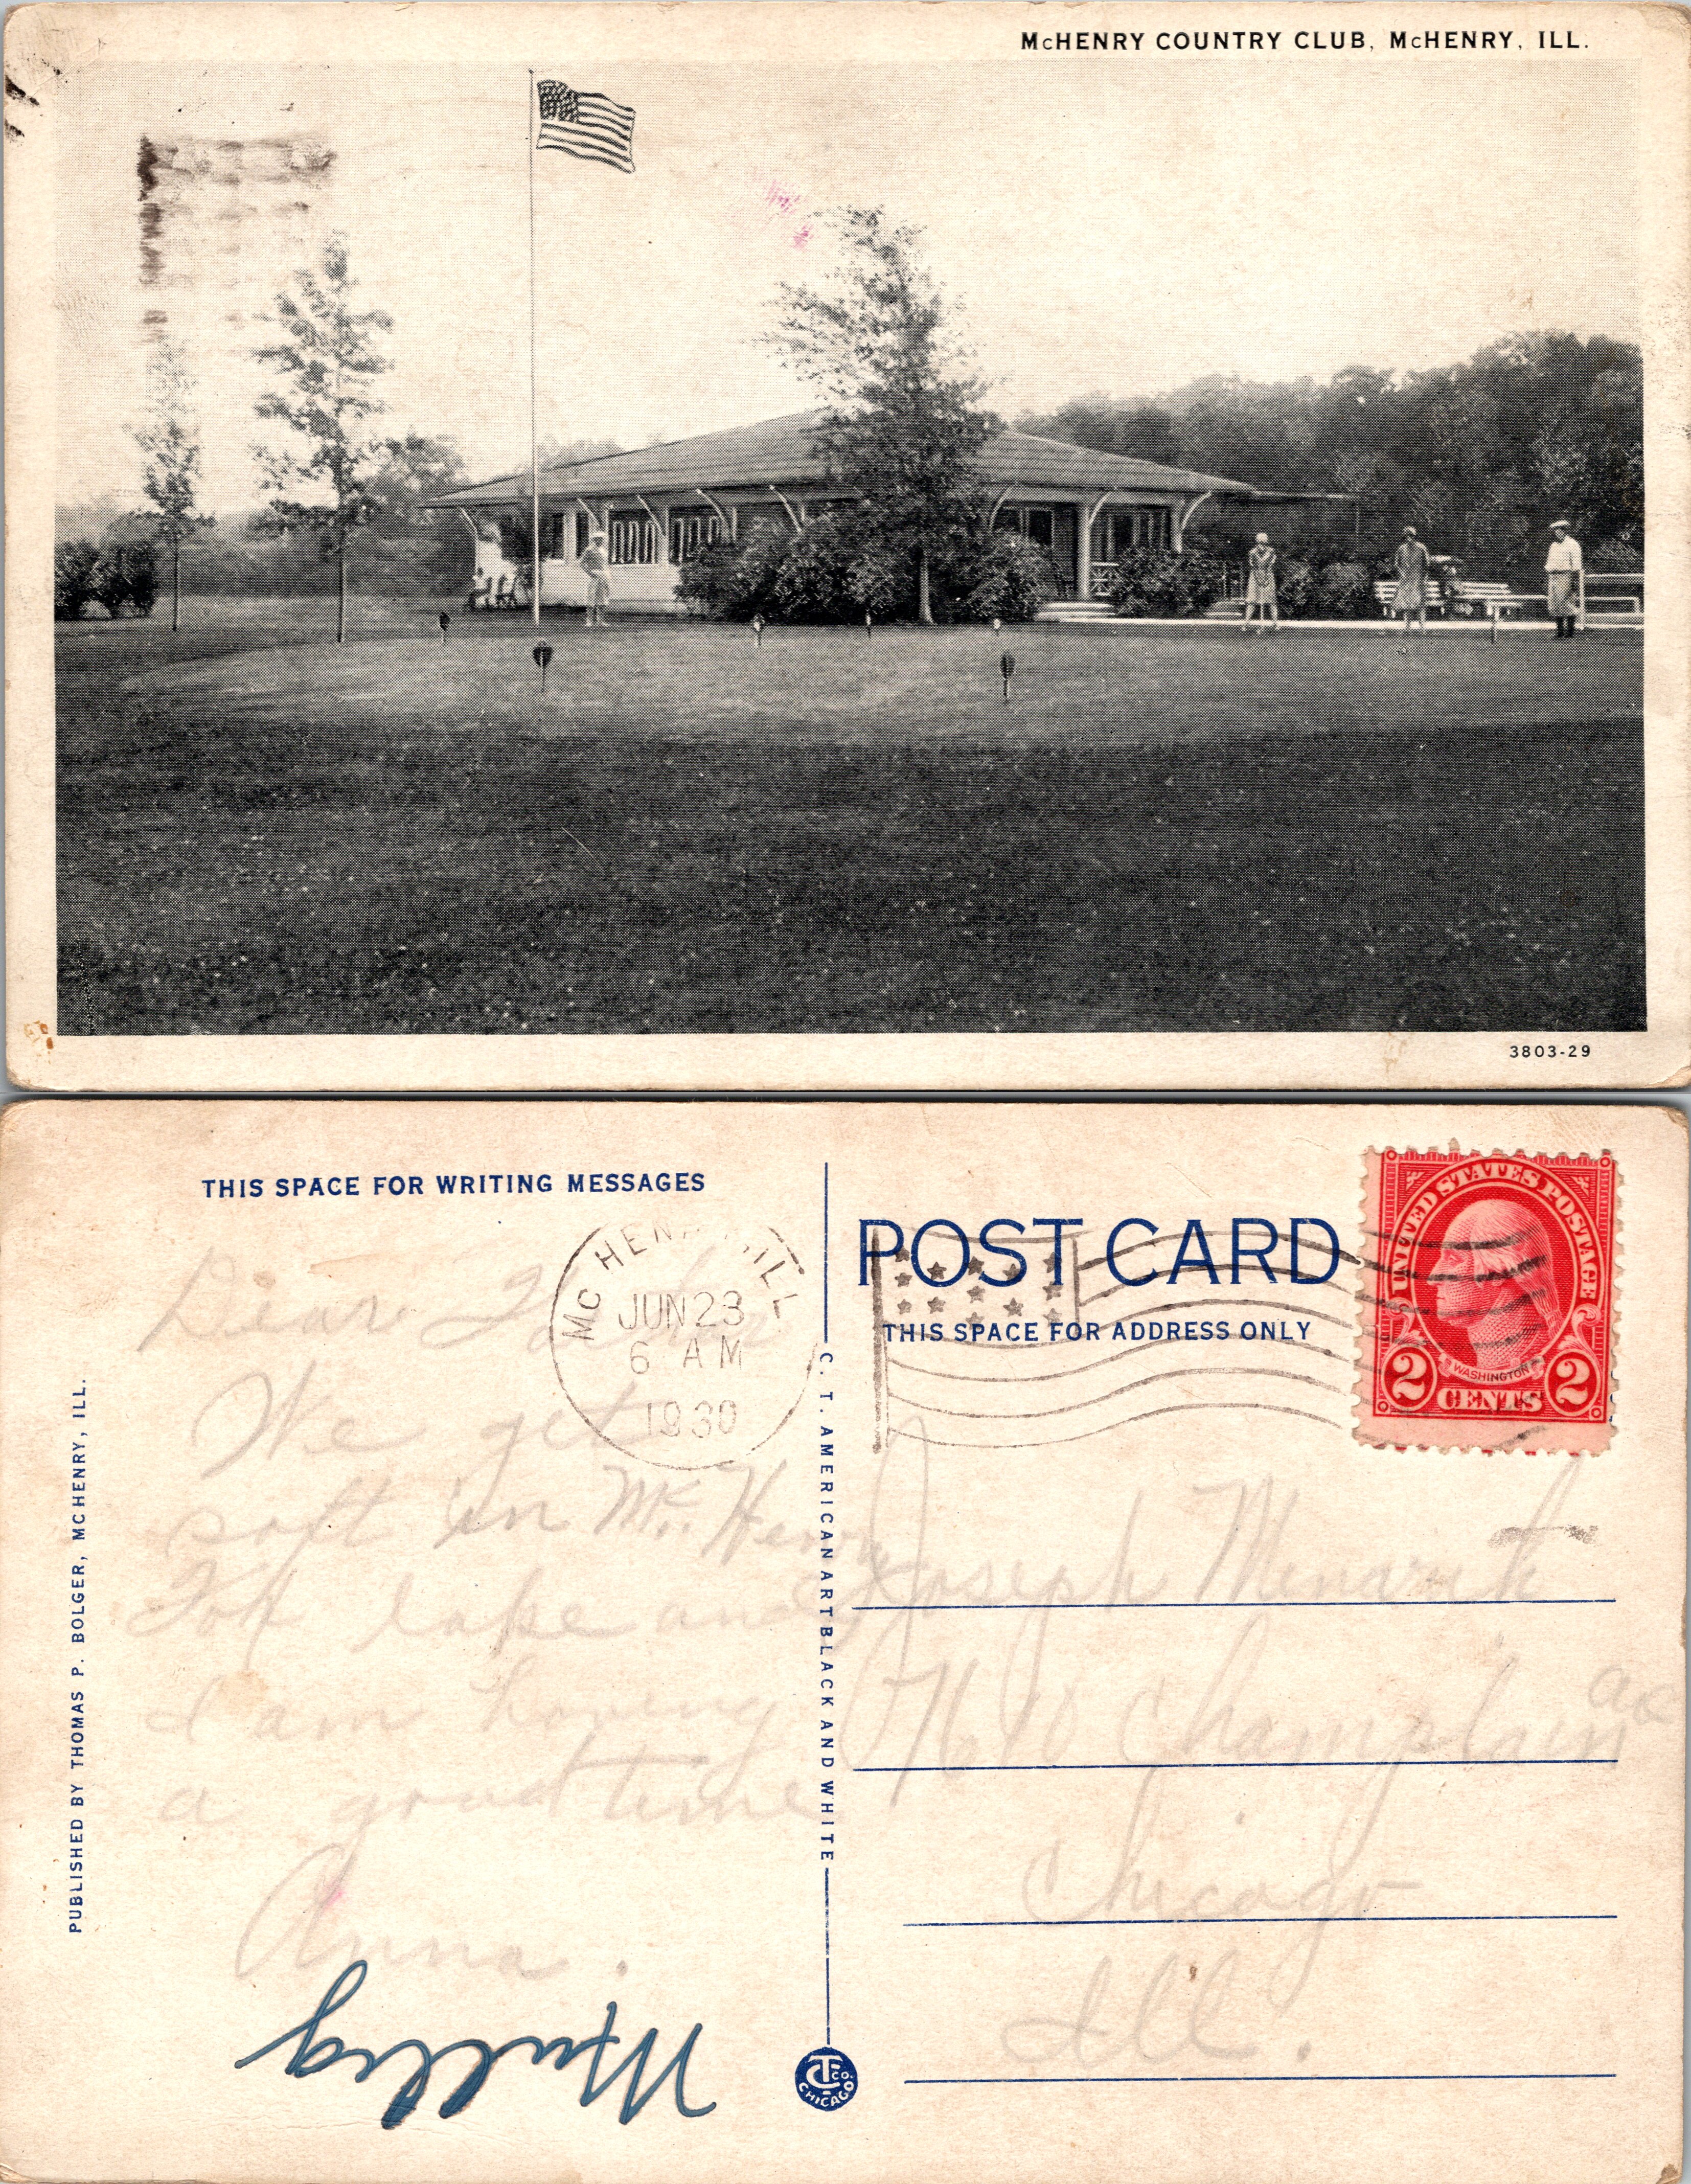 McHENRY COUNTRY CLUB, McHENRY, ILL.
3803-29
THIS SPACE FOR WRITING MESSAGES
Dear
We get
soft in Mc.Henry
Fox lake and
I am having
a good time
Anna.
MC HEN ILL
JUN 23
6 AM
1930
PUBLISHED BY THOMAS P. BOLGER, MCHENRY, ILL.
C. T. AMERICAN ART BLACK AND WHITE
C.T. CO. CHICAGO
POST CARD
THIS SPACE FOR ADDRESS ONLY
UNITED STATES POSTAGE
WASHINGTON
2 CENTS 2
Joseph
Champlain
Chicago
Ill.